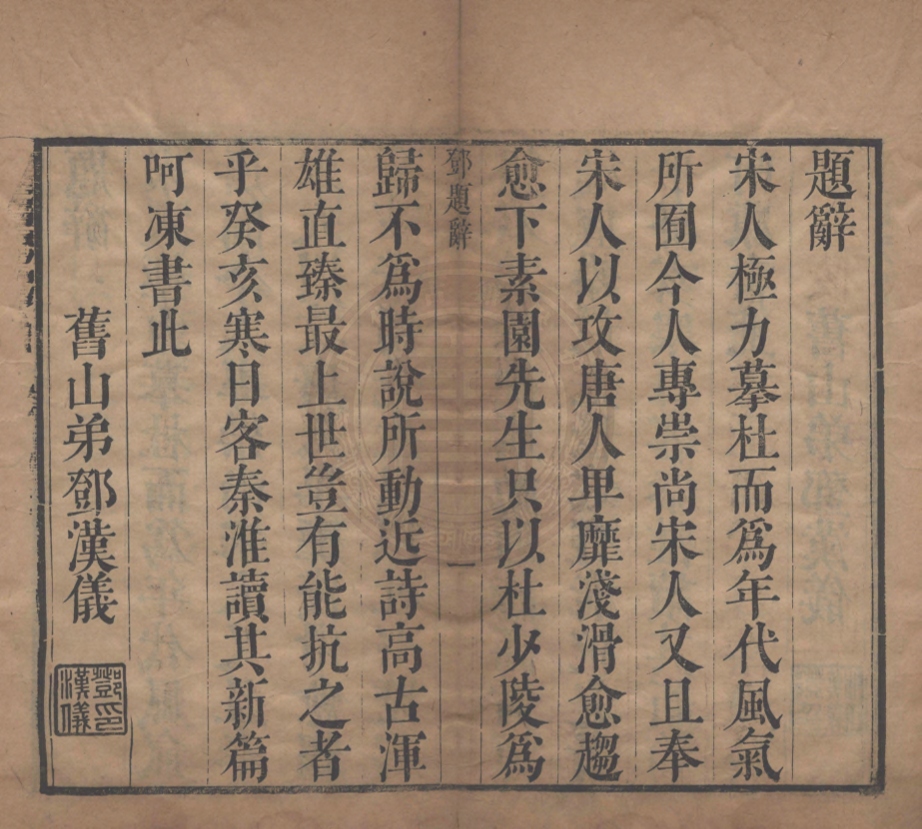 題辭
宋人極力摹杜而爲年代風氣
所囿今人專崇尚宋人又且奉
宋人以攻唐人卑靡淺滑愈趨
愈下素園先生只以杜少陵爲
鄧題辭
一
歸不爲時說所動近詩高古渾
雄直臻最上世豈有能抗之者
乎癸亥寒日客秦淮讀其新篇
呵凍書此
舊山弟鄧漢儀
鄧漢儀印